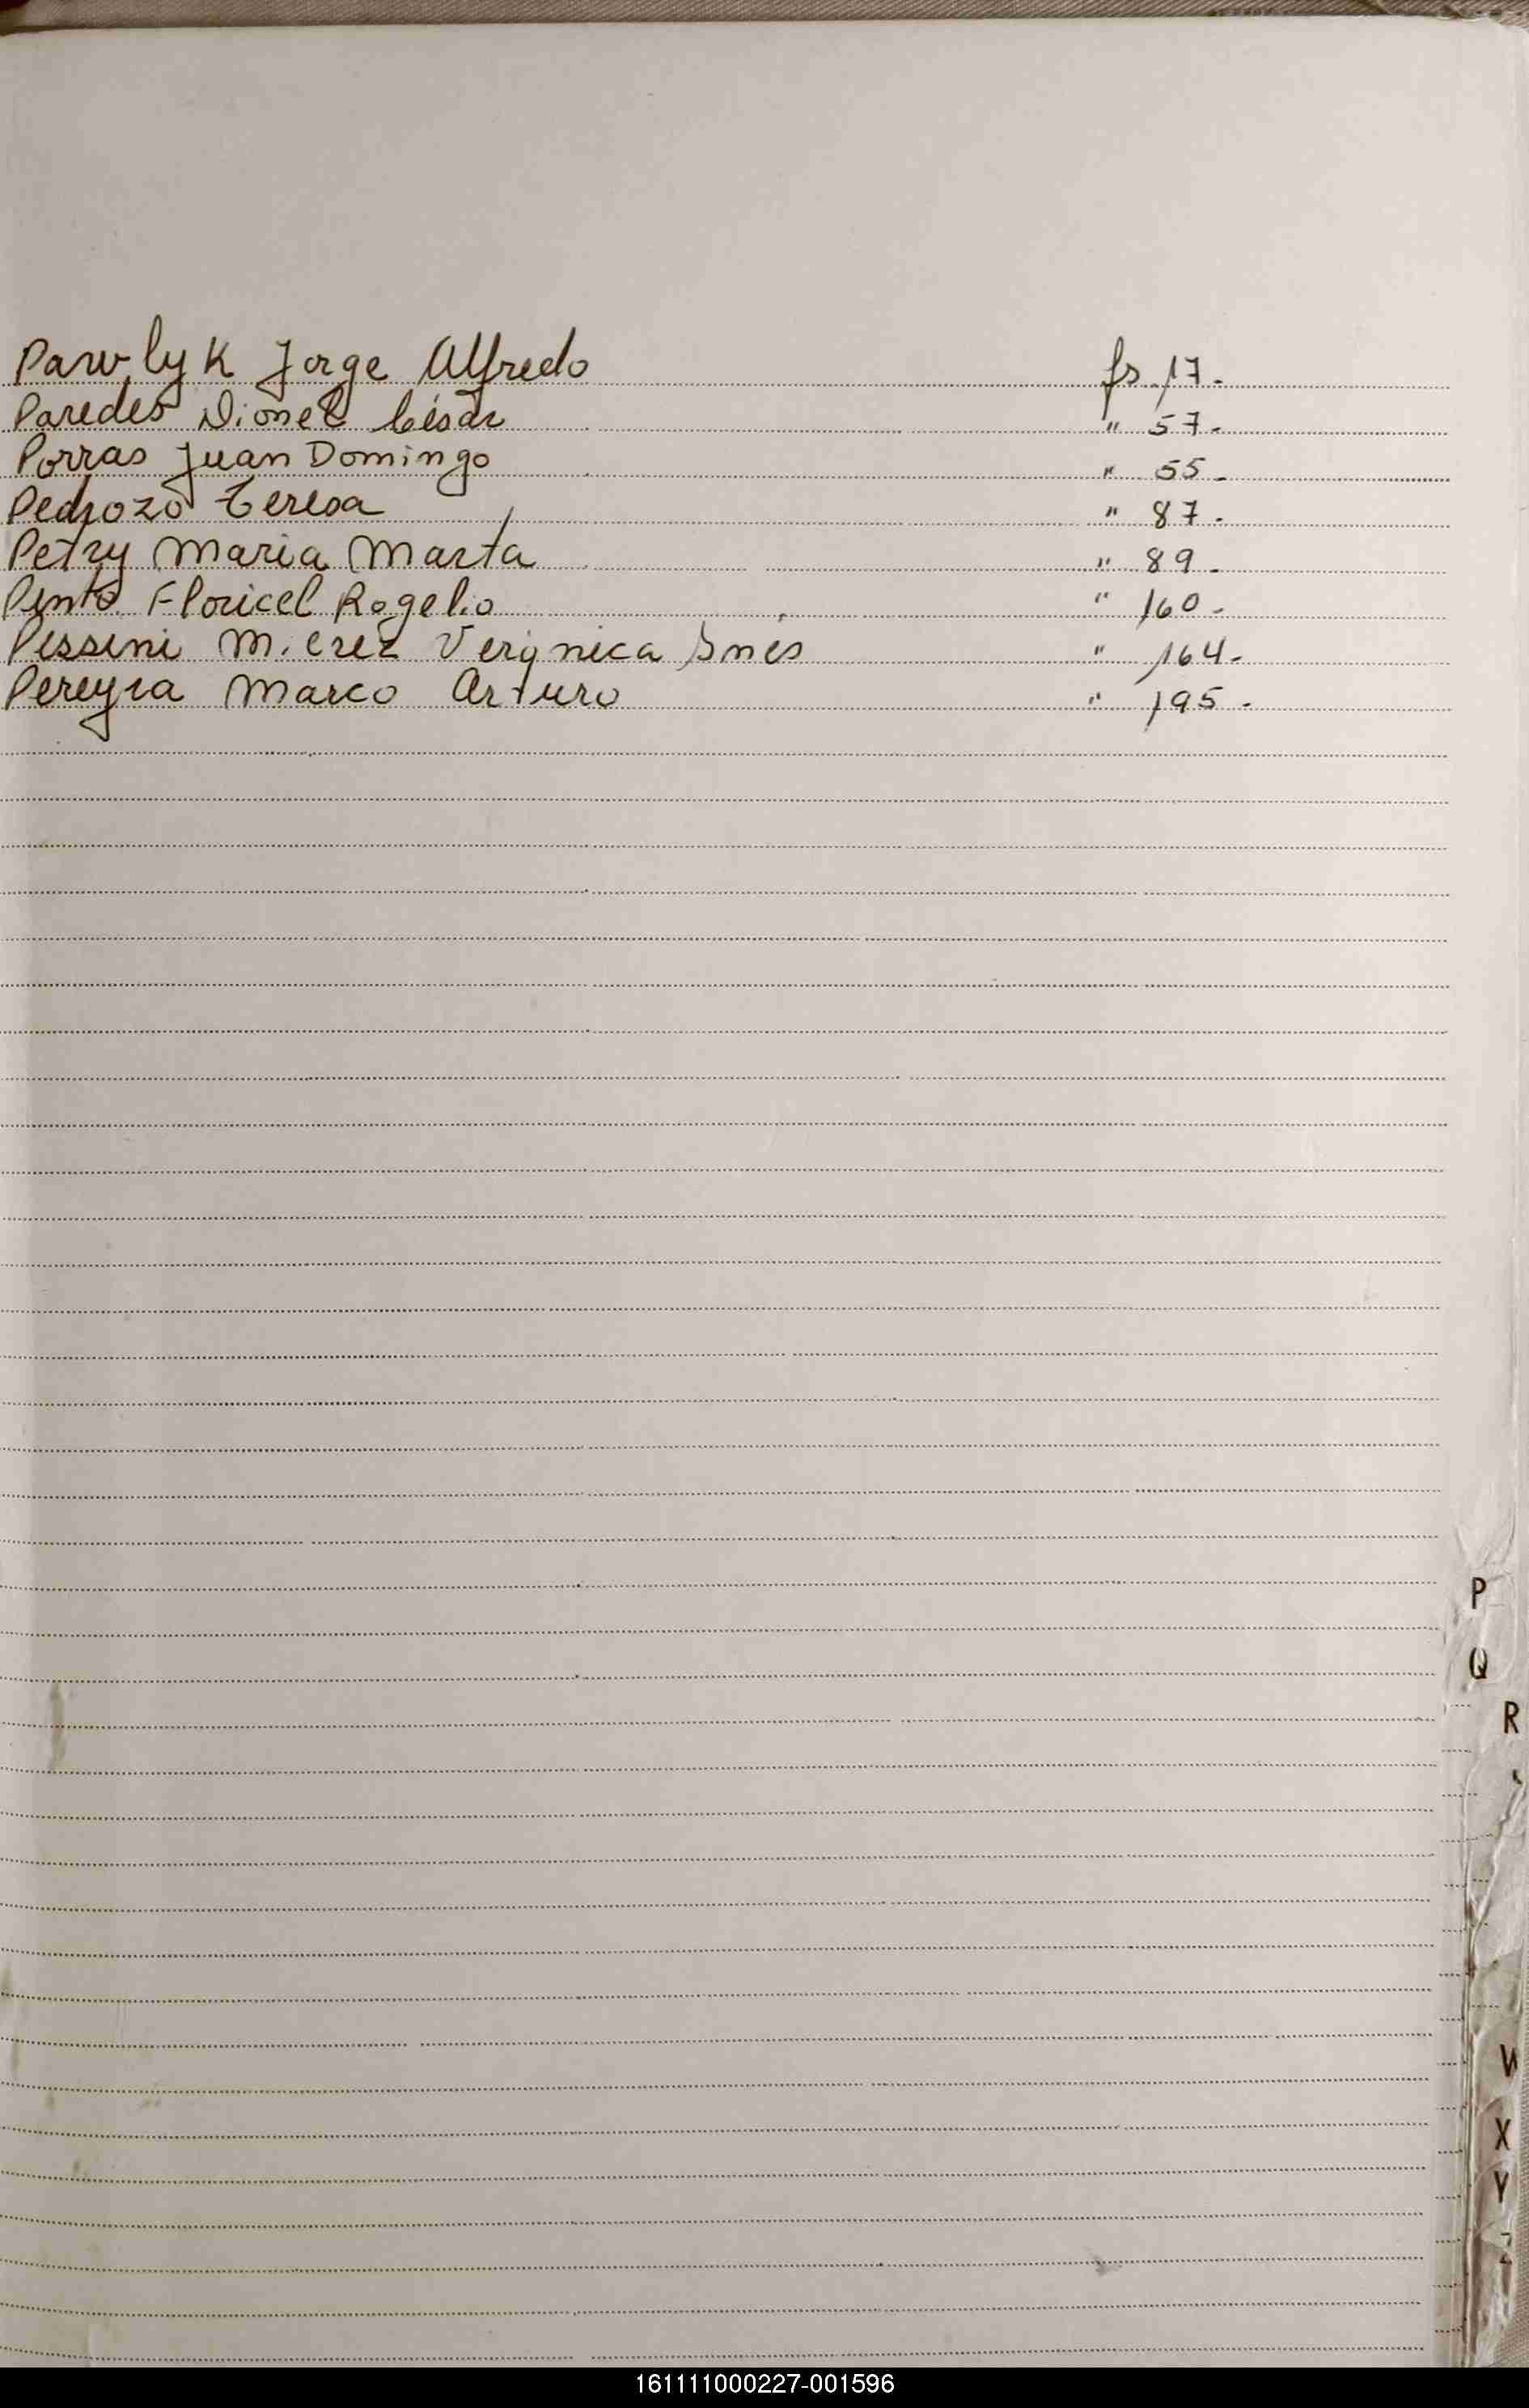 Pawlyk Jorge Alfredo fs. 17.-
Paredes Dionel César " 57.-
Porras Juan Domingo " 55.-
Pedrozo Teresa " 87.-
Petry Maria Marta " 89.-
Pinto Floricel Rogelio " 160.-
Pessini M. Verónica Inés " 164.-
Pereyra Marco Arturo " 195.-
P
Q
R
W
X
Y
Z
161111000227-001596